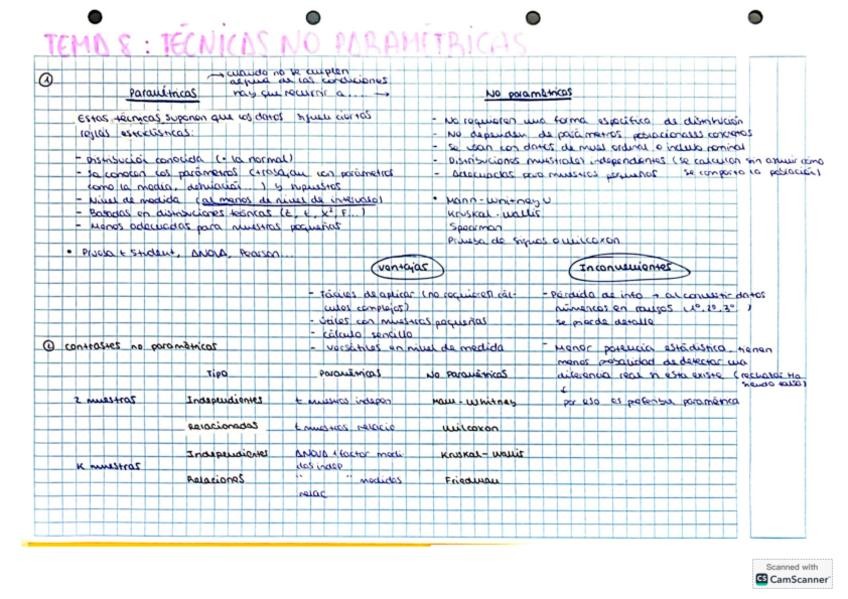 TEMA 8: TÉCNICAS NO PARAMÉTRICAS
①
Paramétricas
→ cuando no se cumplen
alguna de las condiciones
hay que recurrir a... →
No paramétricas
Estas técnicas suponen que los datos siguen ciertas
reglas estadísticas:
- Distribución conocida (· la normal)
- Se conocen los parámetros (trabajan con parámetros
como la media, desviación...) y supuestos
- Nivel de medida (al menos de nivel de intervalo)
- Basadas en distribuciones teóricas (z, t, x², F...)
- Menos adecuadas para muestras pequeñas
• Prueba t Student, ANOVA, Pearson...
- No requieren una forma específica de distribución
- No dependen de parámetros poblacionales concretos
- Se usan con datos de nivel ordinal o incluso nominal
- Distribuciones muestrales independientes (se calculan sin asumir como
se comporta la población)
- Adecuadas para muestras pequeñas
• Mann-Whitney U
Kruskal-Wallis
Spearman
Prueba de signos o Wilcoxon
Ventajas
- Fáciles de aplicar (no requieren cál-
culos complejos)
- Útiles con muestras pequeñas
- Cálculo sencillo
- Versátiles en nivel de medida
Inconvenientes
- Pérdida de info → al convertir datos
numéricos en rangos (1º, 2º, 3º )
se pierde detalle
- Menor potencia estadística, tienen
menos posibilidad de detectar una
diferencia real si esta existe (rechazar Ho
siendo falsa)
↓
por eso es preferible paramétrica
② Contrastes no paramétricos
Tipo Paramétricas No Paramétricas
2 muestras Independientes t muestras indepen Mann-Whitney
Relacionadas t muestras relacio Wilcoxon
K muestras Independientes ANOVA 1 factor medi
das indep Kruskal-Wallis
Relaciones " " medidas
relac Friedman
Scanned with
CS CamScanner